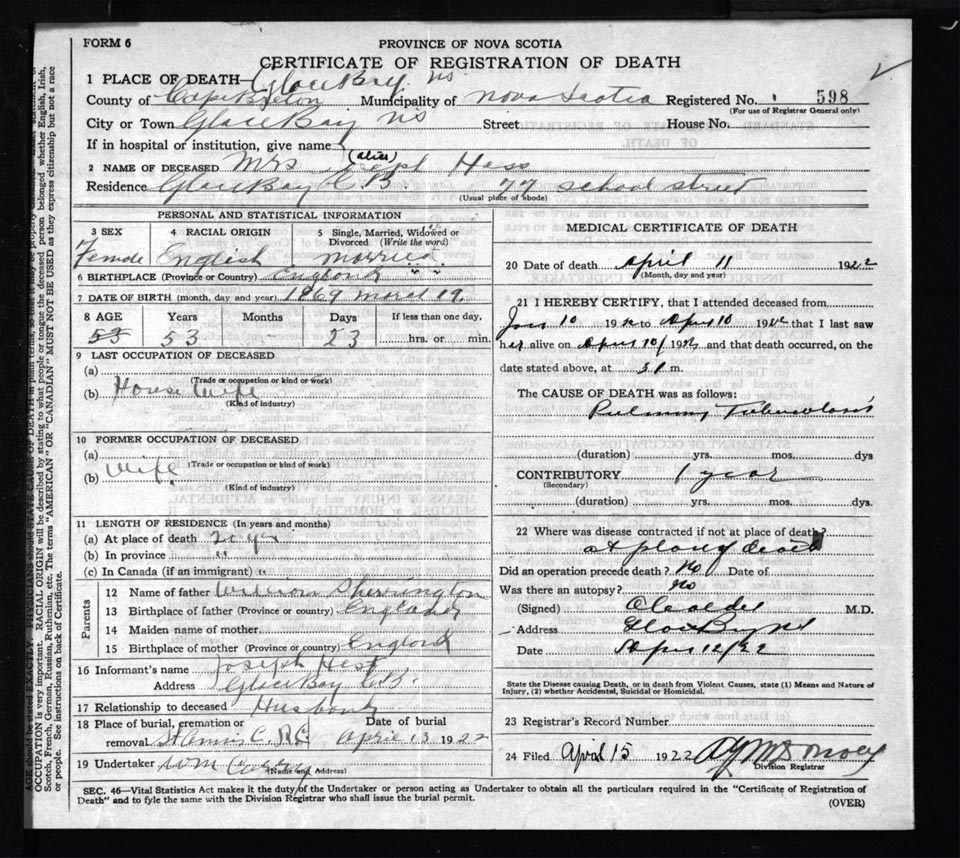 FORM 6
PROVINCE OF NOVA SCOTIA
CERTIFICATE OF REGISTRATION OF DEATH
1 PLACE OF DEATH— Glace Bay NS
County of Cape Breton Municipality of Nova Scotia Registered No. 598
(For use of Registrar General only)
City or Town Glace Bay NS Street House No.
If in hospital or institution, give name
2 NAME OF DECEASED Mrs (alias) Hess
Residence Glace Bay C B. 77 school street
(Usual place of abode)
PERSONAL AND STATISTICAL INFORMATION
3 SEX 4 RACIAL ORIGIN 5 Single, Married, Widowed or Divorced (Write the word)
Female English married
6 BIRTHPLACE (Province or Country) England
7 DATE OF BIRTH (month, day and year) 1869 March 19.
8 AGE Years Months Days If less than one day,
53 53 - 23 hrs. or min.
9 LAST OCCUPATION OF DECEASED
(a)
(Trade or occupation or kind or work)
(b) House Wife
(Kind of industry)
10 FORMER OCCUPATION OF DECEASED
(a)
(Trade or occupation or kind of work)
(b) Wife
(Kind of industry)
11 LENGTH OF RESIDENCE (In years and months)
(a) At place of death 20 yrs
(b) In province "
(c) In Canada (if an immigrant) "
Parents
12 Name of father William Sherrington
13 Birthplace of father (Province or country) England
14 Maiden name of mother
15 Birthplace of mother (Province or country) England
16 Informant's name Joseph Hess
Address Glace Bay C.B.
17 Relationship to deceased Husband
18 Place of burial, cremation or Date of burial
removal St Anns C. R.C April 13 1922
19 Undertaker Wm
(Name and Address)
MEDICAL CERTIFICATE OF DEATH
20 Date of death April 11 1922
(Month, day and year)
21 I HEREBY CERTIFY, that I attended deceased from
Jan 10 1922 to April 10 1922 that I last saw
her alive on April 10/ 1922 and that death occurred, on the
date stated above, at m.
The CAUSE OF DEATH was as follows:
Pulmonary Tuberculosis
(duration) yrs. mos. dys
CONTRIBUTORY 1 year
(Secondary)
(duration) yrs. mos. dys.
22 Where was disease contracted if not at place of death?
at place of death
Did an operation precede death? No Date of
Was there an autopsy? No
(Signed) M.D.
Address Glace Bay NS
Date Apr 12/22
State the Disease causing Death, or in death from Violent Causes, state (1) Means and Nature of
Injury, (2) whether Accidental, Suicidal or Homicidal.
23 Registrar's Record Number
24 Filed April 15 1922
Division Registrar
SEC. 46—Vital Statistics Act makes it the duty of the Undertaker or person acting as Undertaker to obtain all the particulars required in the "Certificate of Registration of
Death" and to fyle the same with the Division Registrar who shall issue the burial permit.
(OVER)
OCCUPATION is very important. RACIAL ORIGIN will be described by stating to what people or tongue the deceased person belonged whether English, Irish,
Scotch, French, German, Russian, Ruthenian, etc. The terms "AMERICAN" OR "CANADIAN" MUST NOT BE USED as they express citizenship but not a race
or people. See instructions on back of Certificate.